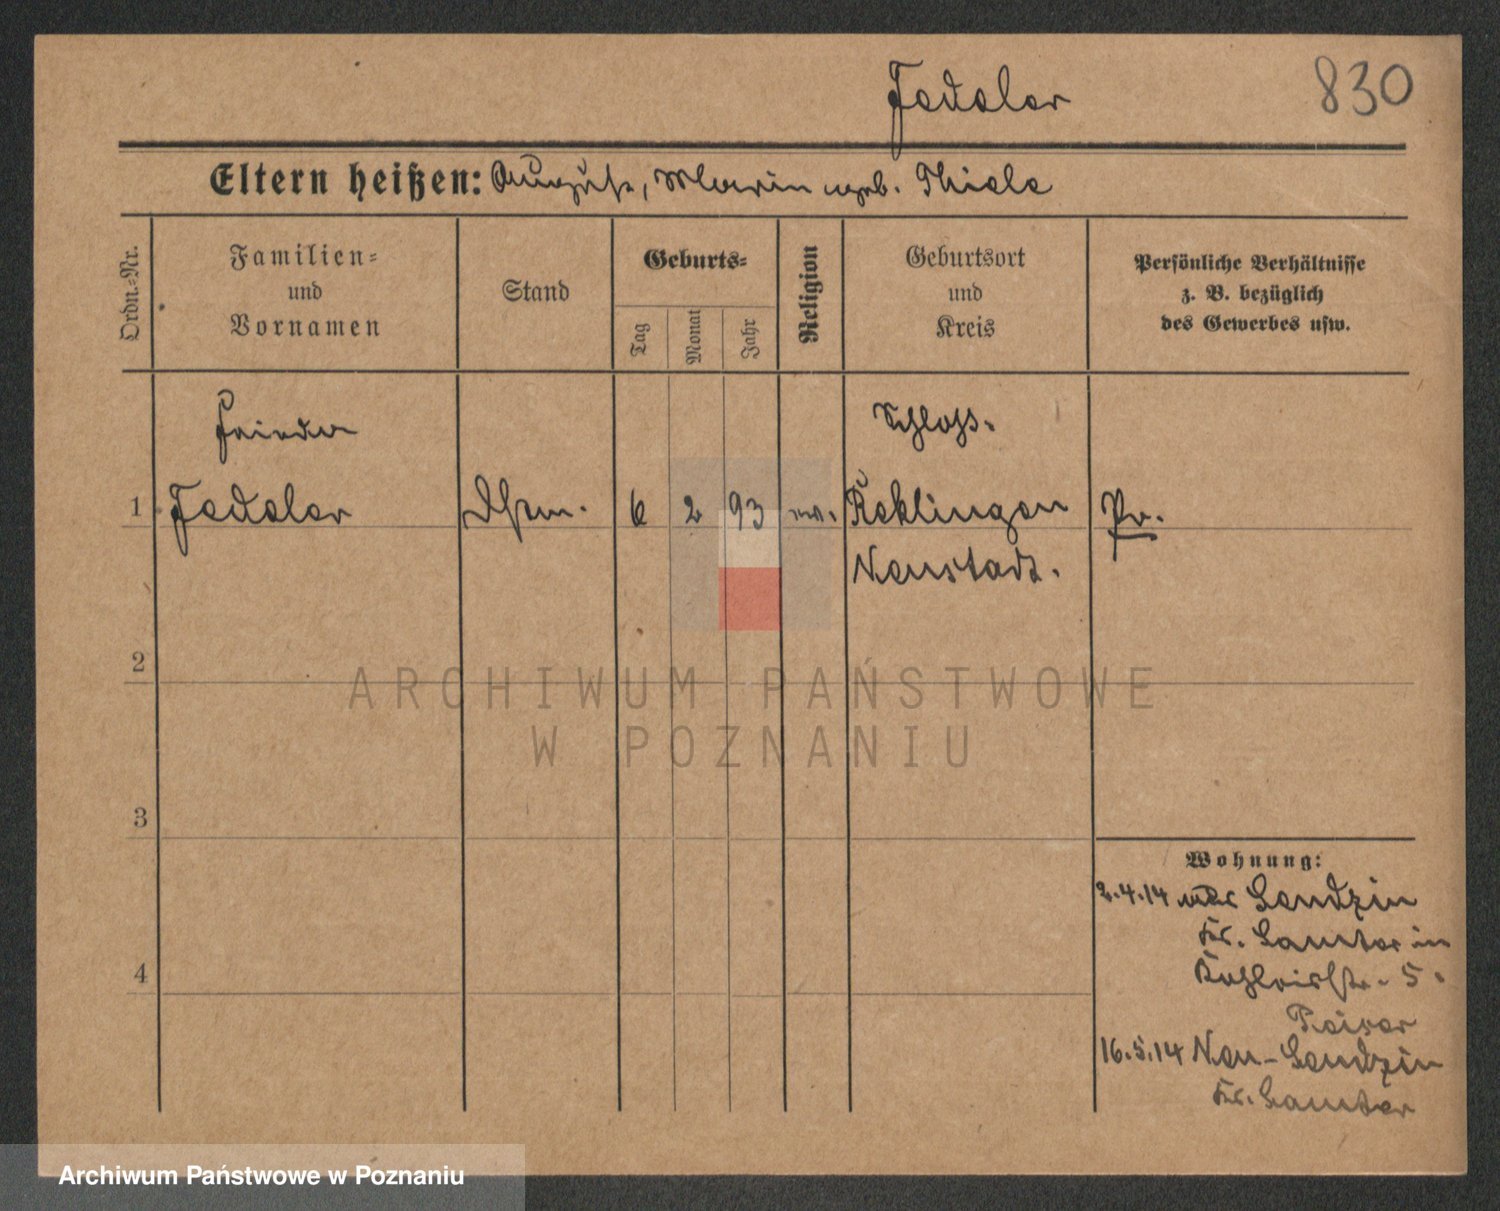 Fedeler 830
Eltern heißen: August, Marie geb. Thiele
Ordn.-Nr.
Familien-
und
Vornamen
Stand
Geburts-
Tag
Monat
Jahr
Religion
Geburtsort
und
Kreis
Persönliche Verhältnisse
z. B. bezüglich
des Gewerbes usw.
Schloss-
1 Fedeler 6 2 93 Reklingen Pr.
Neustadt.
2
3
Wohnung:
2.4.14 Sendzin
Kr. Samter in
4
5.
16.5.14 Neu-Sendzin
Kr. Samter
ARCHIWUM PAŃSTWOWE
W POZNANIU
Archiwum Państwowe w Poznaniu